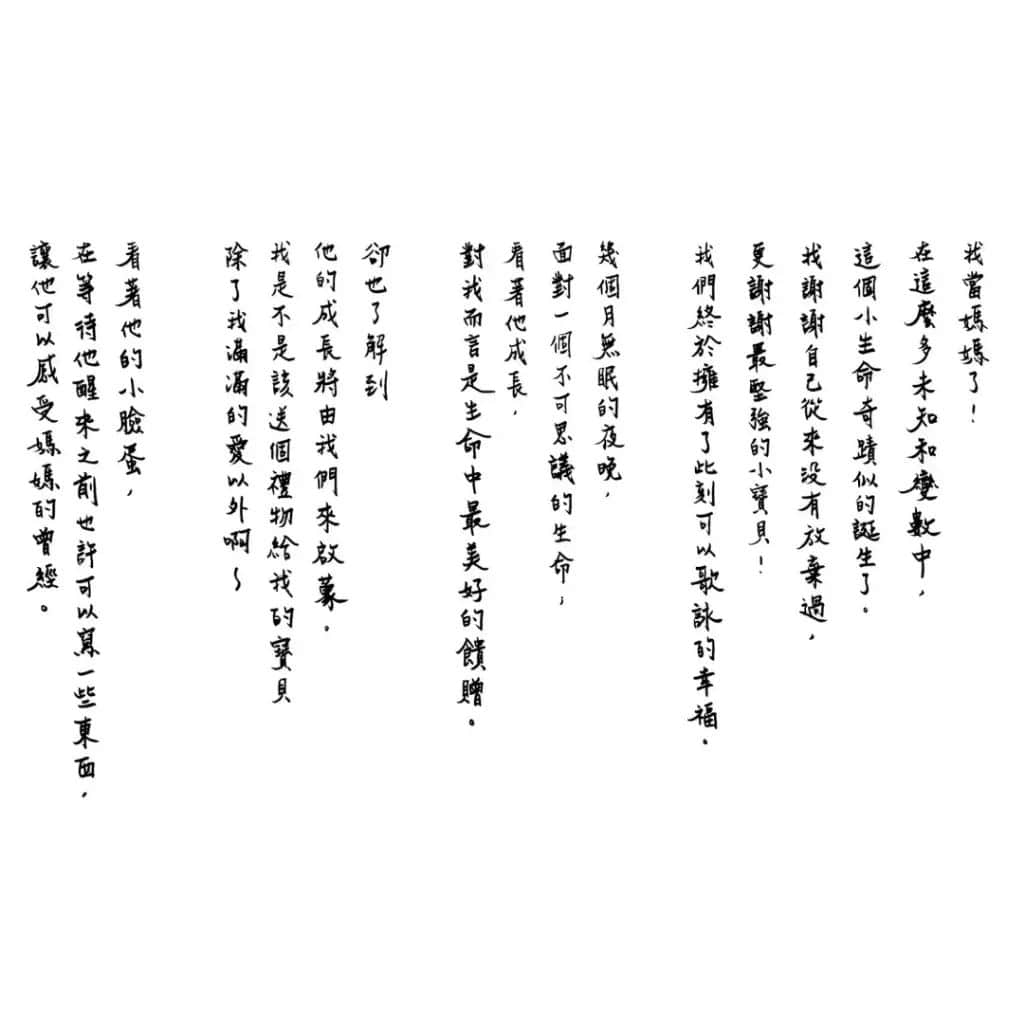 我當媽媽了!
在這麼多未知和變數中,
這個小生命奇蹟似的誕生了。
我謝謝自己從來沒有放棄過,
更謝謝最堅強的小寶貝!
我們終於擁有了此刻可以歌詠的幸福。
幾個月無眠的夜晚,
面對一個不可思議的生命;
看著他成長,
對我而言是生命中最美好的饋贈。
卻也了解到
他的成長將由我們來啟蒙。
我是不是該送個禮物給我的寶貝
除了我滿滿的愛以外啊~
看著他的小臉蛋,
在等待他醒來之前也許可以寫一些東西,
讓他可以感受媽媽的曾經。